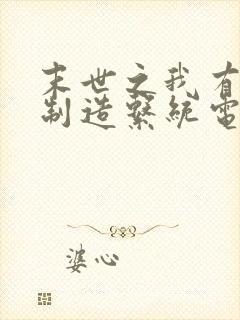 末世之我有
制造系统电
婆心